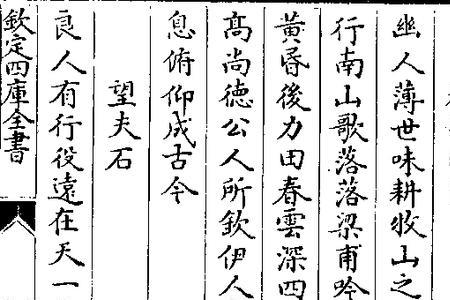 幽人薄世味耕牧山之
行南山歌落落梁甫吟
黄昏後力田春雲深四
高尚德公人所欽伊人
息俯仰成古今
望夫石
良人有行役遠在天一
欽定四庫全書